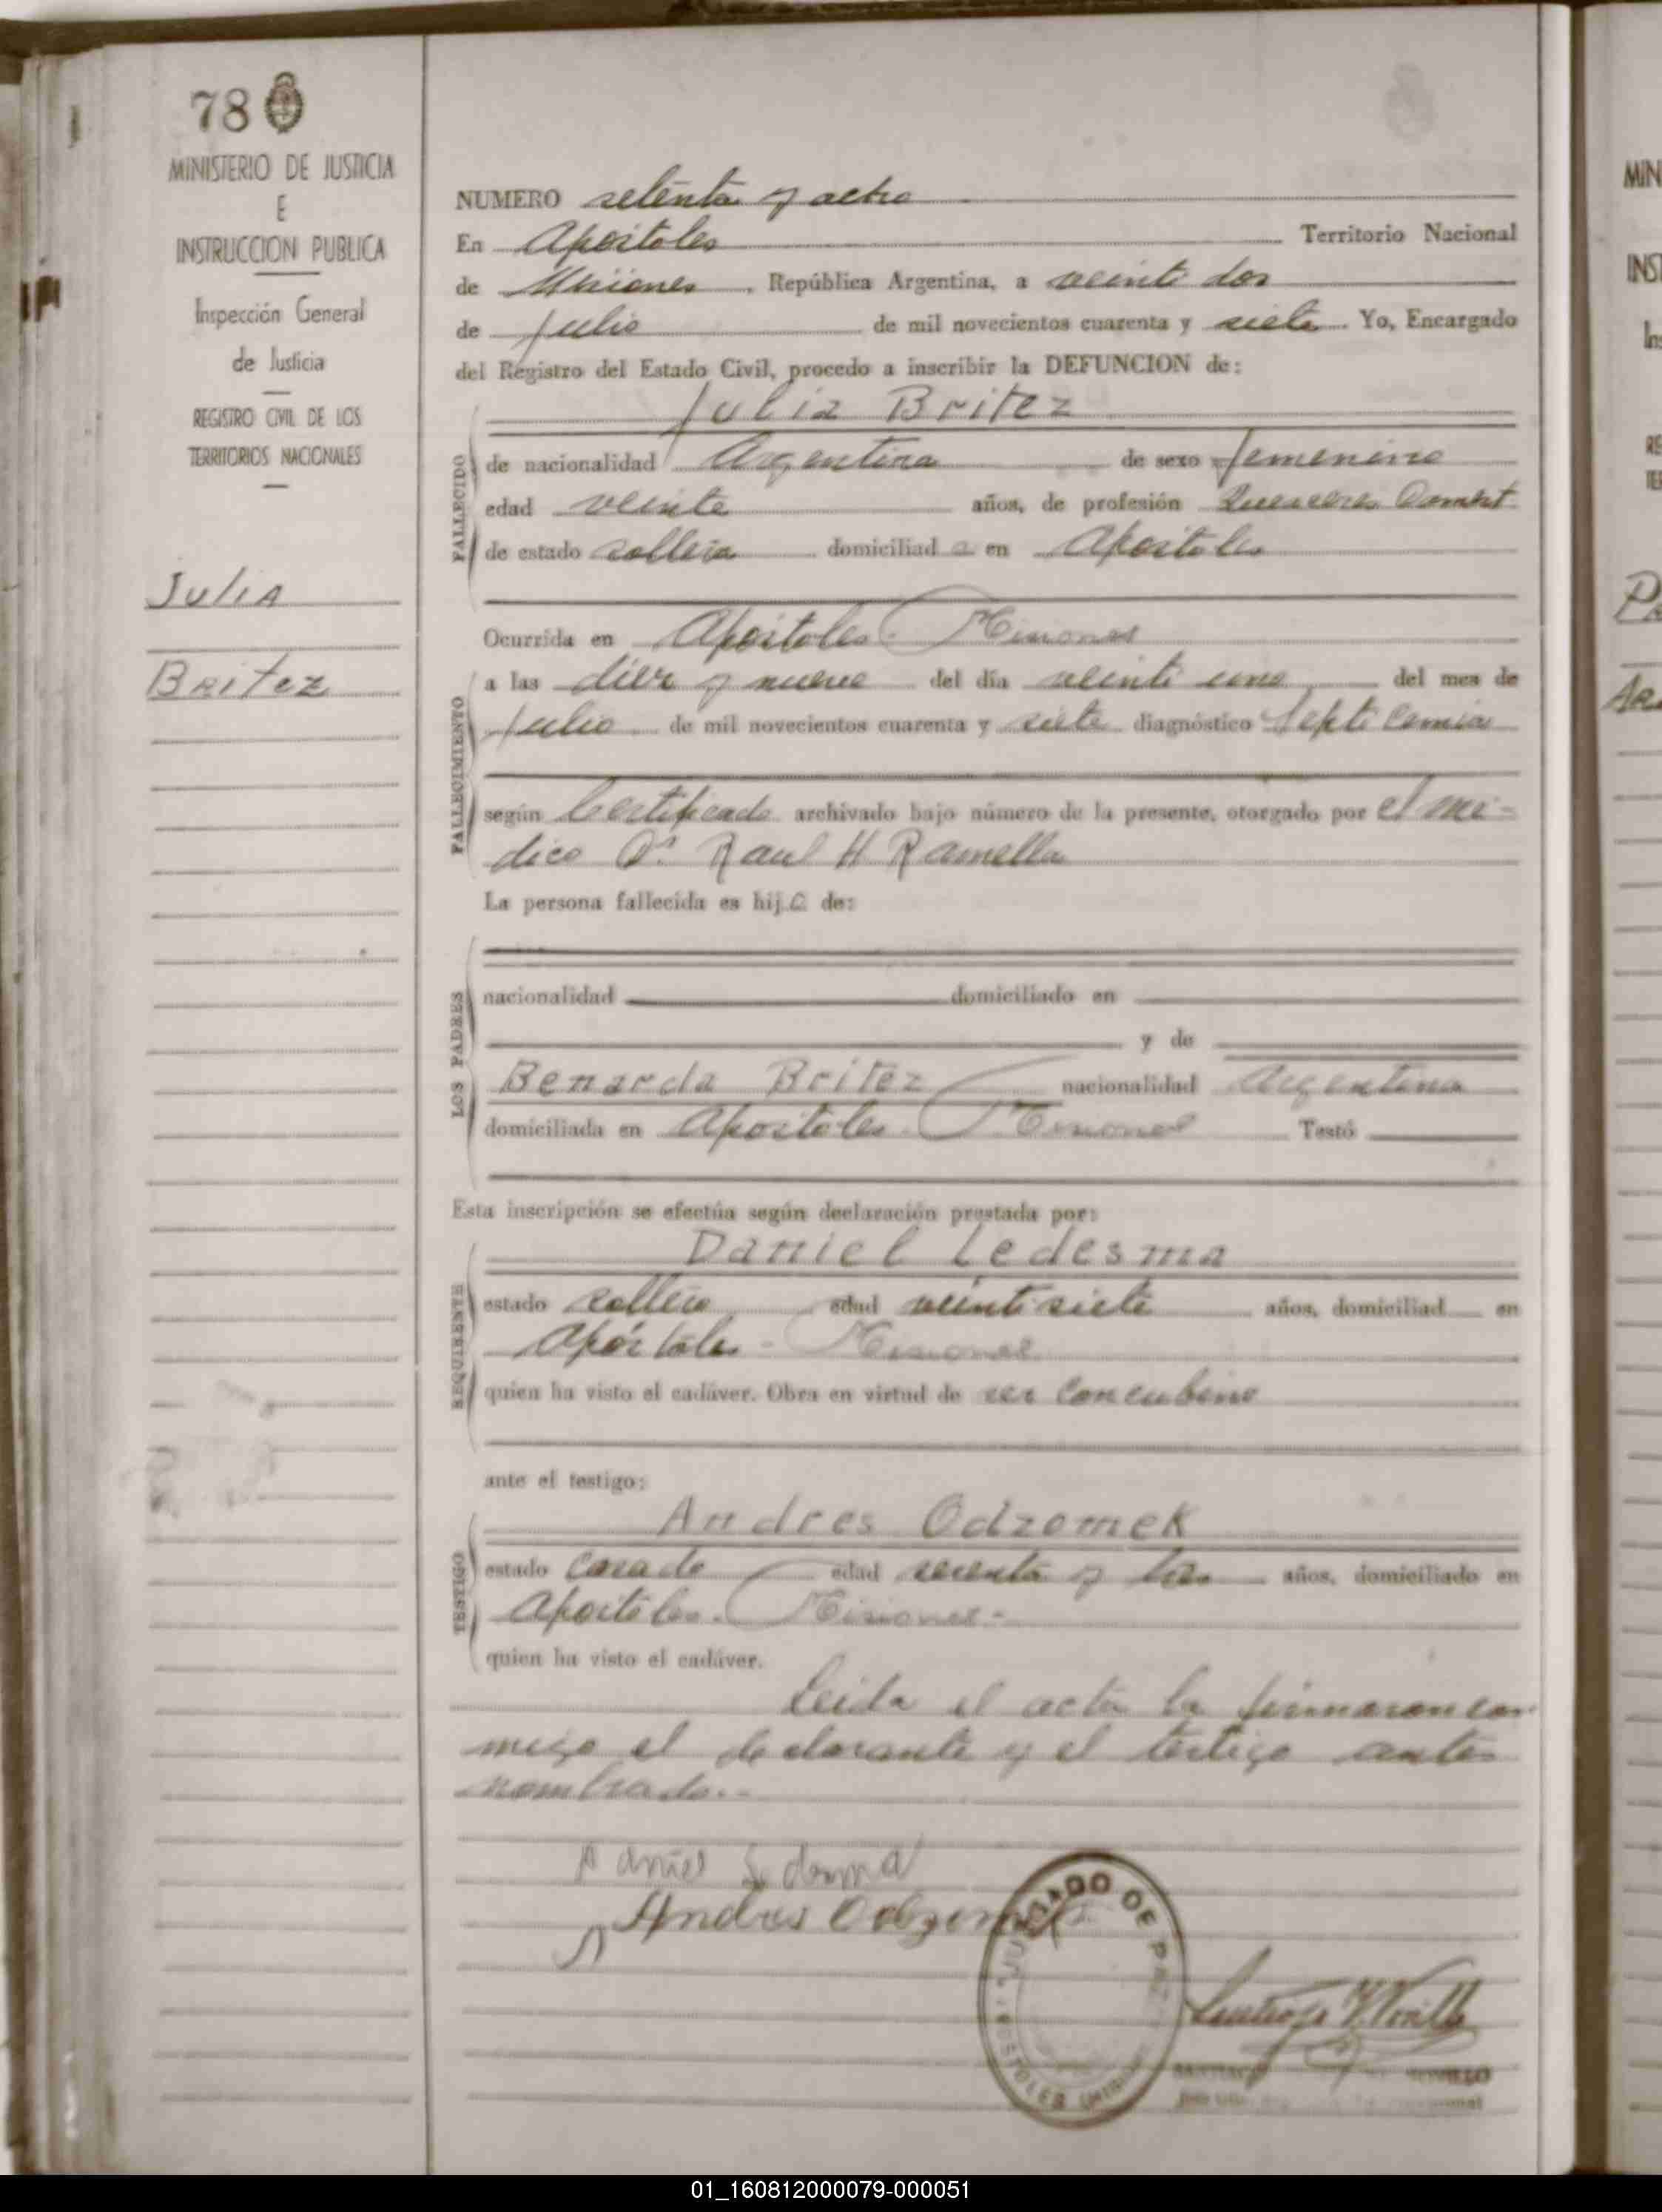 78
MINISTERIO DE JUSTICIA
E
INSTRUCCION PUBLICA
Inspección General
de Justicia
REGISTRO CIVIL DE LOS
TERRITORIOS NACIONALES
Julia
Britez
NUMERO setenta y ocho
En Apostoles Territorio Nacional
de Misiones, República Argentina, a veinti dos
de Julio de mil novecientos cuarenta y siete Yo, Encargado
del Registro del Estado Civil, procedo a inscribir la DEFUNCION de:
Julia Britez
FALLECIDO
de nacionalidad Argentina de sexo femenino
edad veinte años, de profesión Quehaceres Domést.
de estado soltera domiciliad a en Apostoles
Ocurrida en Apostoles Misiones
FALLECIMIENTO
a las diez y nueve del día veinti uno del mes de
Julio de mil novecientos cuarenta y siete diagnóstico Septi cemia
según Certificado archivado bajo número de la presente, otorgado por el mé-
dico Dr. Raul H Ramella
La persona fallecida es hij a de:
LOS PADRES
nacionalidad domiciliado en
y de
Benarda Britez nacionalidad Argentina
domiciliada en Apostoles - Misiones Testó
Esta inscripción se efectúa según declaración prestada por:
Daniel Ledesma
REQUIRENTE
estado soltero edad veinti siete años, domiciliad en
Apóstoles - Misiones
quien ha visto el cadáver. Obra en virtud de ser Concubino
ante el testigo:
Andres Odzomek
TESTIGO
estado Casado edad y tres años, domiciliado en
Apostoles - Misiones -
quien ha visto el cadáver.
Leida el acta la firmaron con
migo el declarante y el testigo antes
nombrado.-
Daniel Ledesma
Andres
JUZGADO DE PAZ
APOSTOLES
SANTIAGO